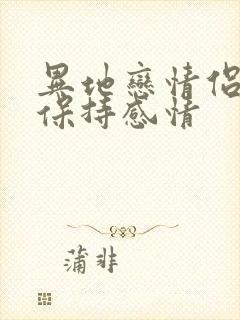 異地戀情侶
保持感情
蒲非